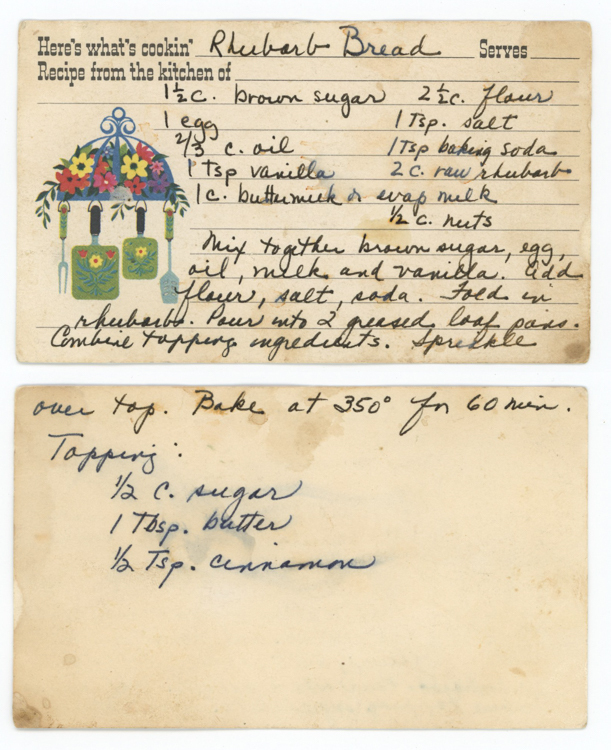 Here's what's cookin' Rhubarb Bread Serves
Recipe from the kitchen of
1 1/2 c. brown sugar 2 1/2 c. flour
1 egg 1 Tsp. salt
2/3 c. oil 1 Tsp baking soda
1 Tsp vanilla 2 c. raw rhubarb
1 c. buttermilk or evap milk
1/2 c. nuts
Mix together brown sugar, egg,
oil, milk and vanilla. Add
flour, salt, soda. Fold in
rhubarb. Pour into 2 greased loaf pans.
Combine topping ingredients. Sprinkle
over top. Bake at 350° for 60 min.
Topping:
1/2 c. sugar
1 Tbsp. butter
1/2 Tsp. cinnamon